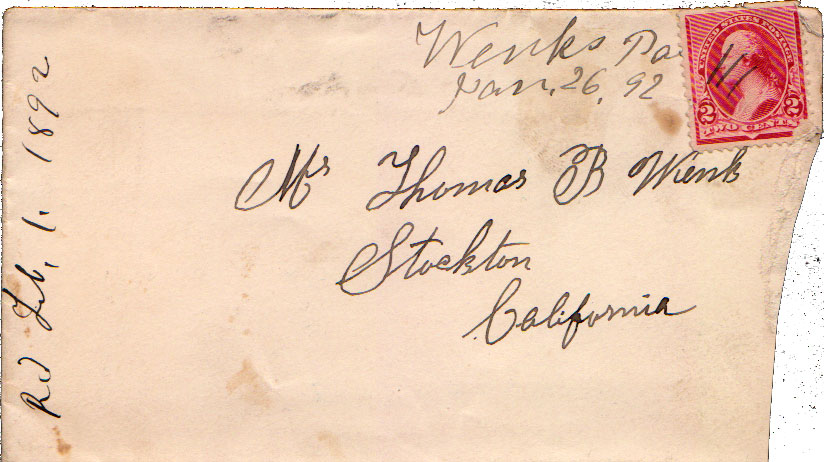 Wenks Pa
Jan. 26, 92
UNITED STATES POSTAGE
2 2
TWO CENTS
Mrs Thomas B Wenk
Stockton
California
Rcd Feb, 1. 1892